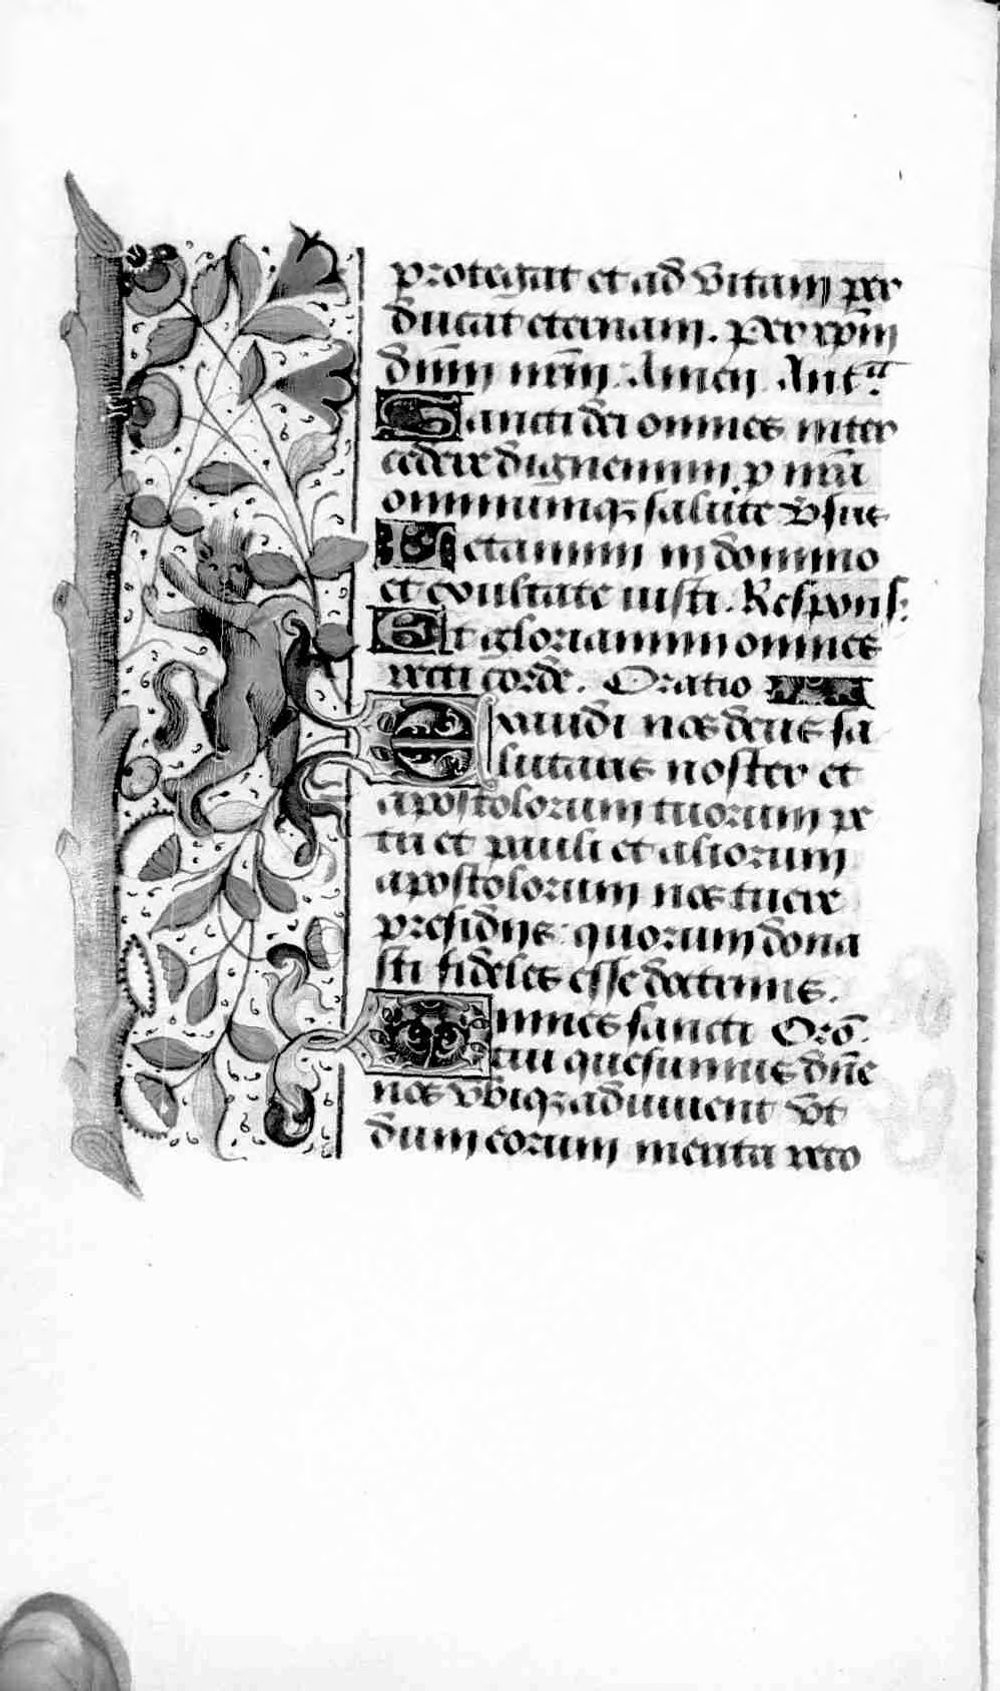 protegat et ad vitam per
ducat eternam. Per xp̄m
dn̄m nr̄m. Amen. Antᵃ
Sancti dei omnes inter
cedere dignemini p nr̄a
omniumqꝫ salute Vsus
Letamini in domino
et exultate iusti. Respons:
Et gloriamini omnes
recti corde. Oratio
Exaudi nos deus sa
lutaris noster et
apostolorum tuorum pe
tri et pauli et aliorum
apostolorum nos tuere
presidijs quorum dona
sti fideles esse doctrinis.
Omnes sancti Orō.
tui quesumus dn̄e
nos vbiqꝫ adiuuent Vt
dum eorum merita reco